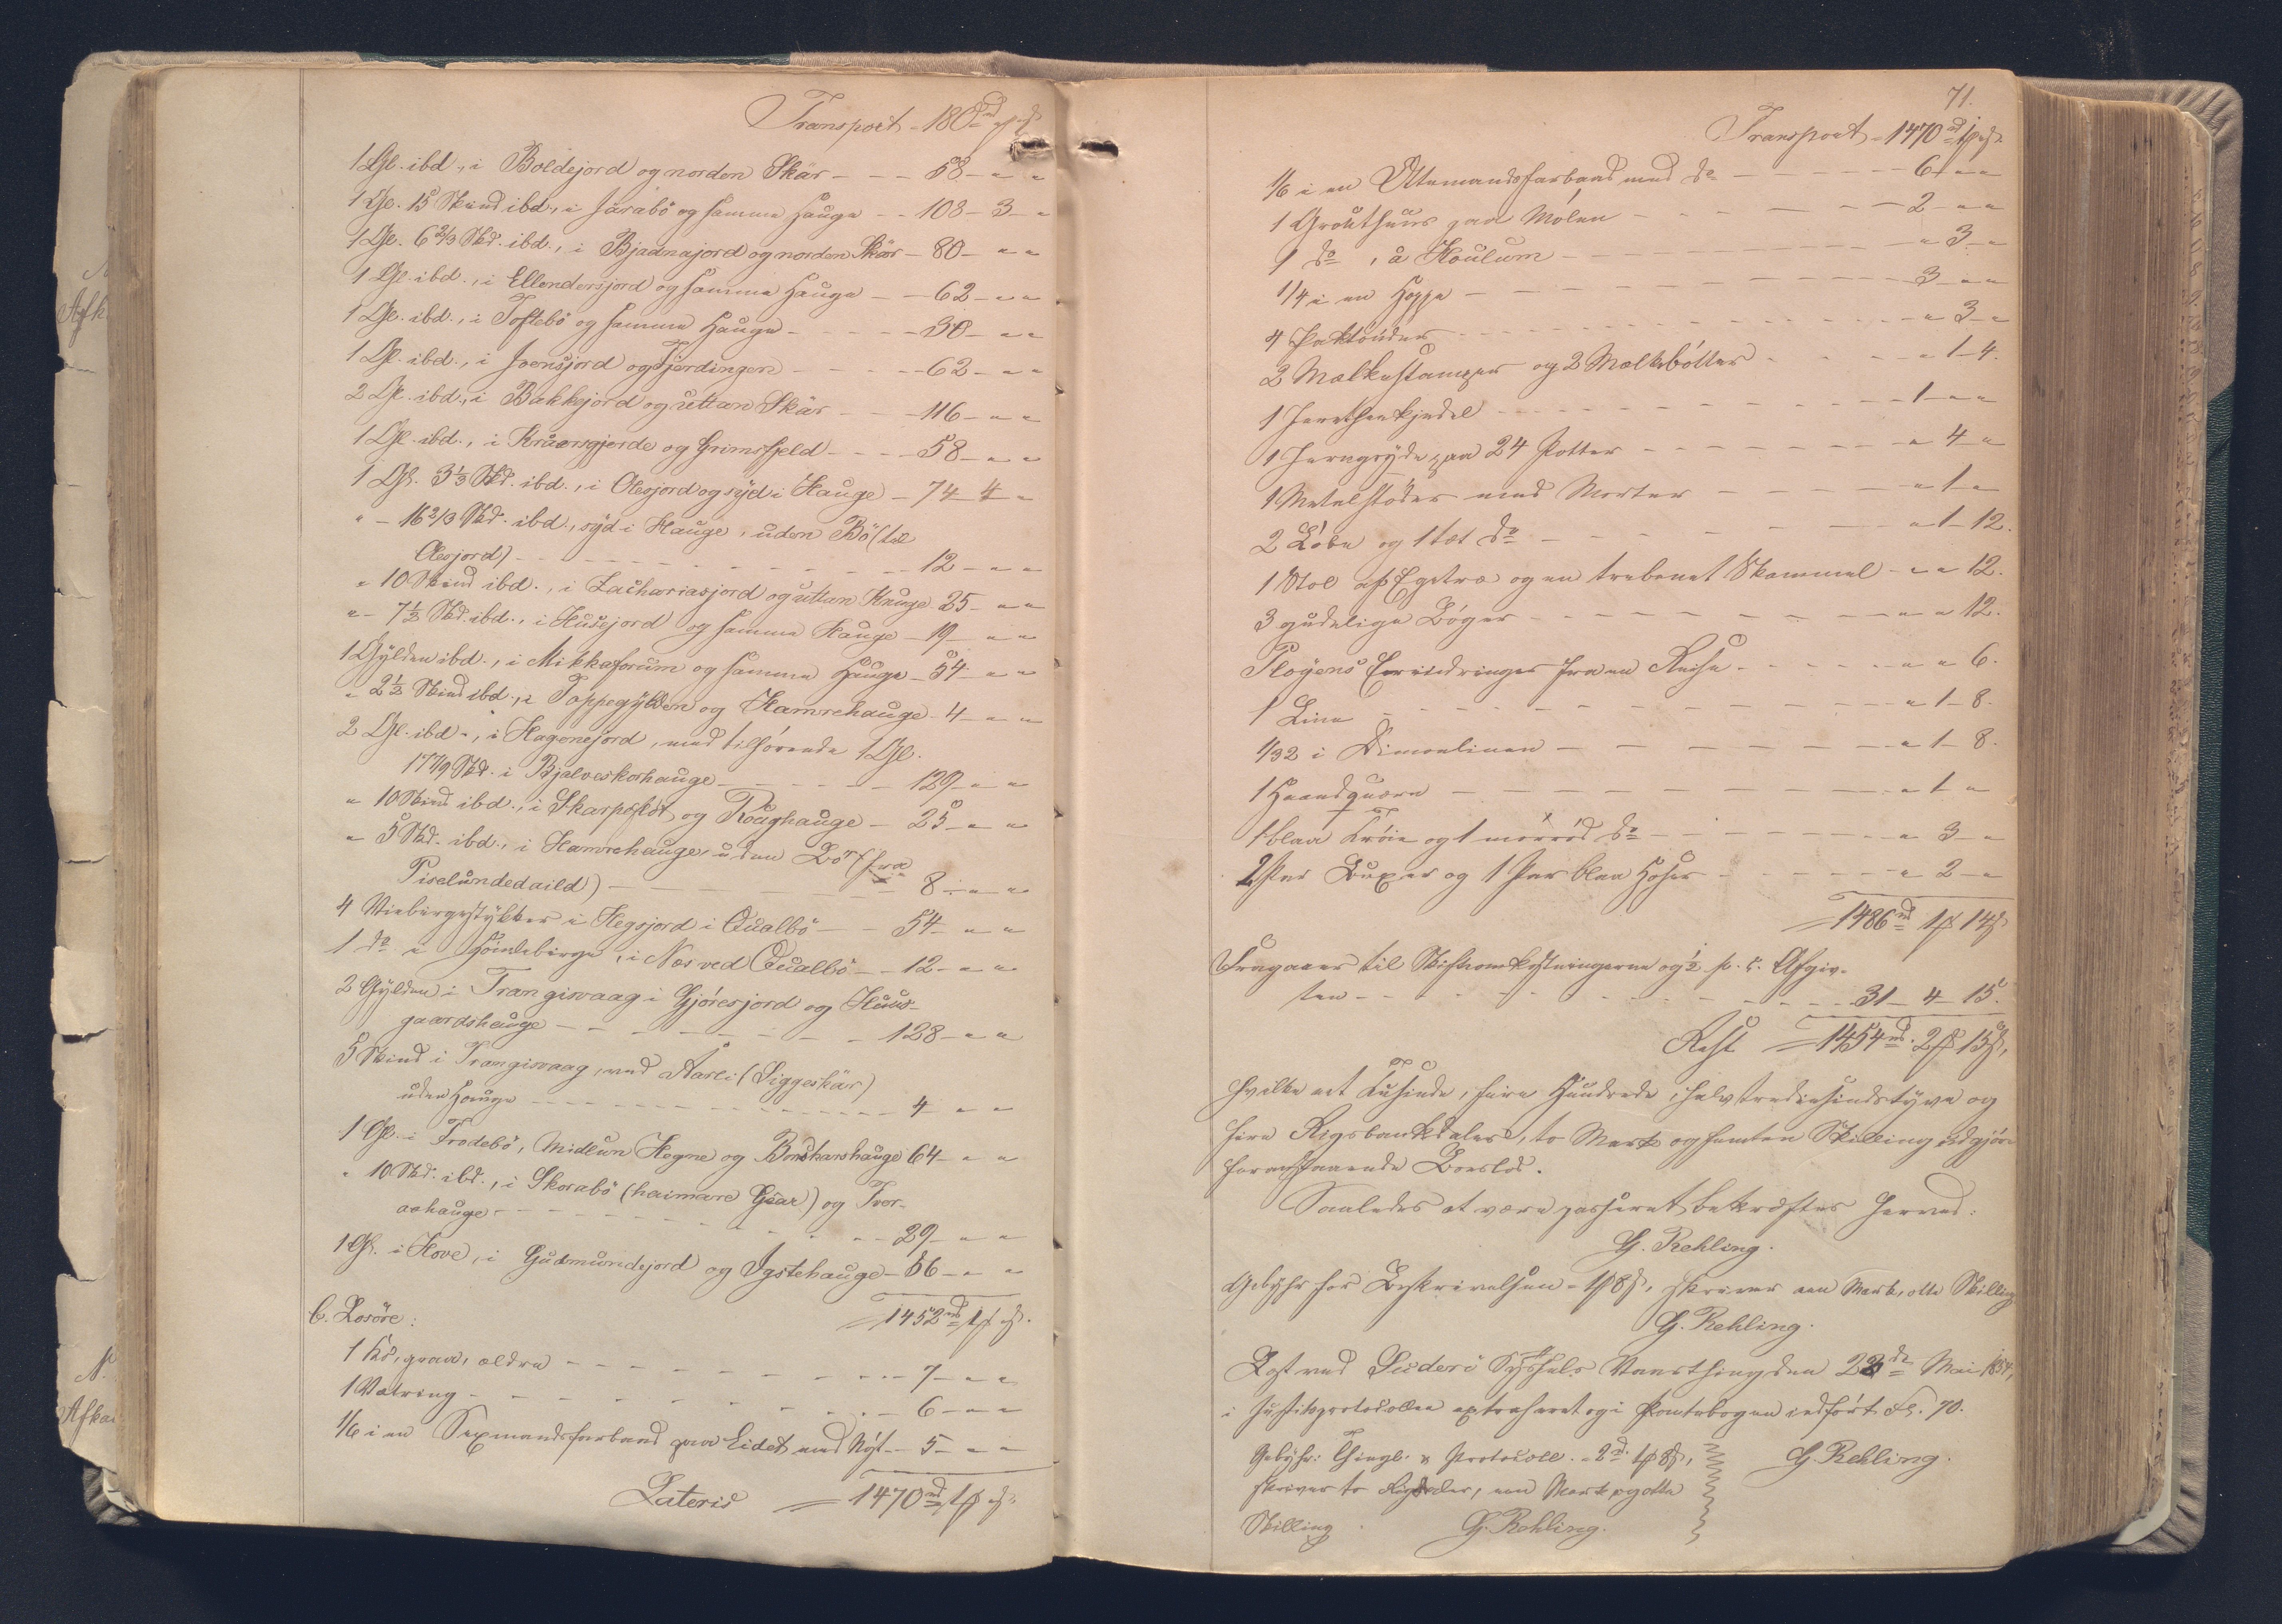 Transport - 180 rd " ₻ " ß
1 Gl. ibd., i Boldejord og norden Skär - - - 58 - " "
1 Gl. 15 Skind ibd., i Järabö og samme Hauge - - 108 - 3 - "
1 Gl. 6 2/3 Skd. ibd., i Bjadnajord og norden Skär - 80 - " "
1 Gl. ibd., i Ellendersjord og samme Hauge - - 62 - " "
1 Gl. ibd., i Toftebö og samme Hauge - - - - - 30 - " "
1 Gl. ibd., i Joensjord og Fjerdingen - - - - - 62 - " "
2 Gl. ibd., i Bakkejord og uttan Skär - - - 116 - " "
1 Gl. ibd., i Kråarsgjerde og Grimsfjeld - - - - 58 - " "
1 Gl. 3 1/3 Skd. ibd., i Olesjord og syd i Hauge - 74 - 4 - "
" - 16 2/3 Skd. ibd., syd i Hauge, uden Bö (til
Olesjord) - - - - - - - - - - - - 12 - " "
" 10 Skind ibd., i Zachariasjord og uttan Hauge 25 - " "
" - 7 1/2 Skd. ibd., i Husejord og samme Hauge - 19 - " "
1 Gylden ibd., i Mikkaforum og samme Hauge - 54 - " "
" 2 1/2 Skind ibd., i Toppegylden og Hamrehauge - 4 - " "
2 Gl. ibd., i Hagonejord, med tilhörende 1 Gl.
17 7/9 Skd. i Bjalveskorhauge - - - - - 129 - " "
" 10 Skind ibd., i Skarpeflöt og Roughauge - 25 - " "
" 5 Skd. ibd., i Hamrehauge, uden Bö (fra
Piselundedaild) - - - - - - 8 - " "
4 Rieburgestykker i Hegsjord i Qualbö - - 54 - " "
1 do i, i Næs ved Qualbö - - 12 - " "
2 Gylden i Trangisvaag i Gjöresjord og Huus-
gaardshauge - - - - - - - 128 - " "
5 Skind i Trangisvaag, ved Aarli (Siggeskär)
uden Hauge - - - - - - - - 4 - " "
1 Gl. i Frodebö, Midlun Hegne og Bondhanshauge 64 - " "
" 10 Skd. ibd., i Skorabö (haimare Gear) og Tvor-
aahauge - - - - - - - - - 29 - " "
1 Gl. i Hove, i Gudmundejord og Ygstehauge - 56 - " "
1452 rd 1 ₻ " ß.
C. Losöre:
1 Ko, graa, ældre - - - - - - - - 7 - " "
1 Vætring - - - - - - - - - 6 - " "
1/6 i en Sexmandsfarbaad paa Eidet med Nyt - 5 - " "
Lateris = 1470 rd 1 ₻ " ß
71.
Transport - 1470 rd 1 ₻ " ß
1/6 i en Ottemandsfarbaad med do - - - - - 6 - " "
1 Grouthuus paa Mölen - - - - - 2 - " "
1 do, å Houlum - - - - - - " 3 - "
1/4 i en Hoppe - - - - - - - 3 - " "
4 Sæktönder - - - - - - - " 3 - "
2 Melkestamper og 2 Melkebötter - - - - " 1 - 4.
1 Theekjedel - - - - - - 1 - " "
1 Jerngryde paa 24 Potter - - - - - " 4 - "
1 Metalstöder med Morter - - - - " 1 - "
2 Löbe og 1 tæt do - - - - - " 1 - 12.
1 Stol af Egetræ og en trebenet Skammel - " " 12.
3 gudelige Böger - - - - - - " " 12.
Pløyens Erindringer fra en Reise - - - - " " 6.
1 Line - - - - - - - - " 1 - 8.
1/32 i Dimonlinen - - - - - - " 1 - 8.
1 Haandquærn - - - - - - " 1 - "
1 blaa Tröie og 1 mörröd do - - - - - " 3 - "
2 Par Buxer og 1 Par blaa Hoser - - - - " 2 - "
= 1486 rd 1 ₻ 14 ß
Fragaaer til Skifteomkostningerne og 1/2 p. C. Afgiv-
ten - - - - - - - - - - 31 - 4 - 15.
Rest = 1454 rd. 2 ₻ 15 ß,
hvilke eet Tusinde, fire Hundrede, halvtredsindstyve og
fire Rigsbankdaler, to Mark og femten Skilling udgjöre
foranstaaende Boeslod.
Saaledes at være passeret bekræftes herved:
G. Rehling.
Gebyhr for Beskrivelsen - 1 ₻ 8 ß, skriver een Mark, otte Skilling
G. Rehling.
Læst ved Suderö Syssels Vaarthing den 22de Mai 1854,
i Justitsprotocollen extraheret og i Pantebogen indfört Fol. 70.
Gebyhr: Thingl. & Protocoll. - 2 rd. 1 ₻ 8 ß,
skriver to Rigsdaler, een Mark og otte
Skilling. G. Rehling.
G. Rehling.